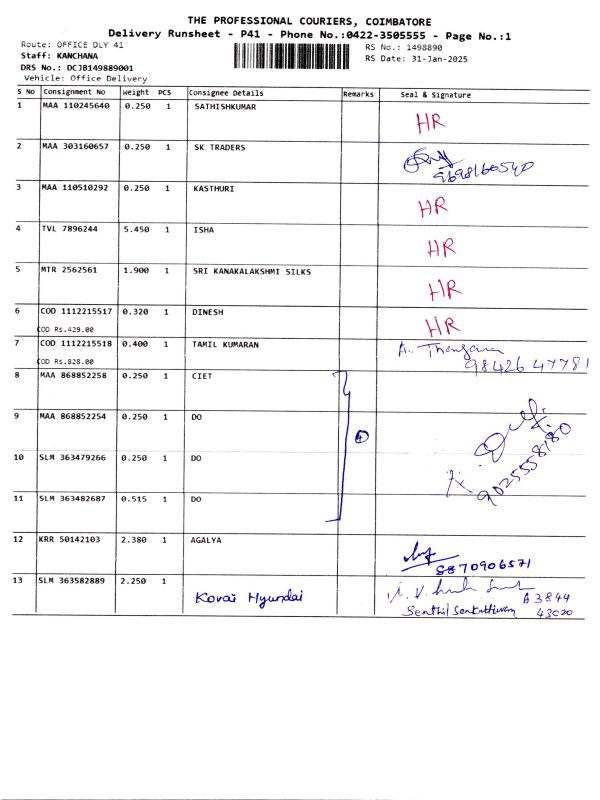 THE PROFESSIONAL COURIERS, COIMBATORE
Delivery Runsheet - P41 - Phone No.:0422-3505555 - Page No.:1
Route: OFFICE DLY 41 RS No.: 1498890
Staff: KANCHANA RS Date: 31-Jan-2025
DRS No.: DCJB149889001
Vehicle: Office Delivery
S No Consignment No Weight PCS Consignee Details Remarks Seal & Signature
1 MAA 110245640 0.250 1 SATHISHKUMAR HR
2 MAA 303160657 0.250 1 SK TRADERS
9698166540
3 MAA 110510292 0.250 1 KASTHURI HR
4 TVL 7896244 5.450 1 ISHA HR
5 MTR 2562561 1.900 1 SRI KANAKALAKSHMI SILKS HR
6 COD 1112215517 0.320 1 DINESH HR
COD Rs.429.00
7 COD 1112215518 0.400 1 TAMIL KUMARAN
COD Rs.828.00 98426 47781
8 MAA 868852258 0.250 1 CIET
9 MAA 868852254 0.250 1 DO 4
10 SLM 363479266 0.250 1 DO 9025558180
11 SLM 363482687 0.515 1 DO
12 KRR 50142103 2.380 1 AGALYA
8870906571
13 SLM 363582889 2.250 1 Kovai Hyundai
43020